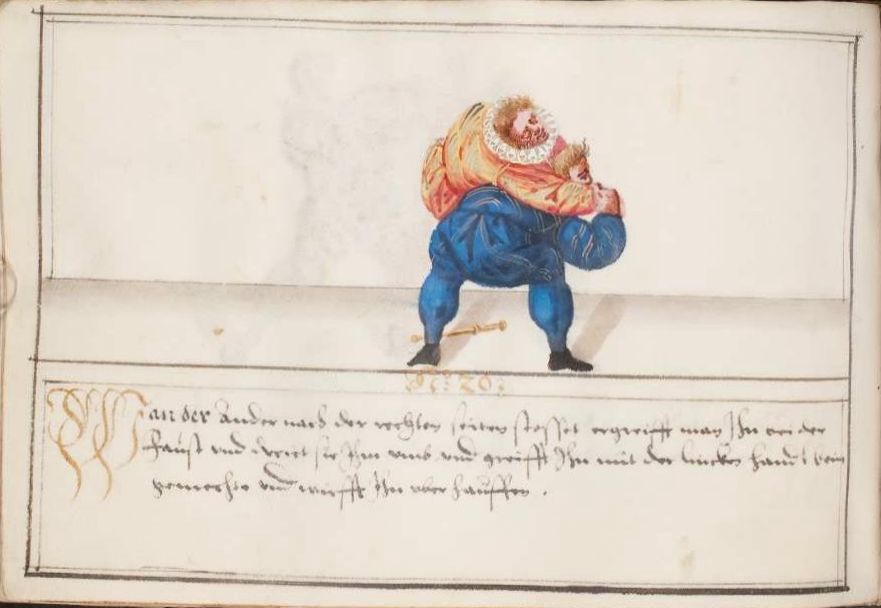 N: 26:
Wan der Ander nach der rechten seiten stosset ergreifft man Jhn bei der
Faust vnd dreet sie Jhm vmb vnd greifft Jhn mit der lincken handt beim
gemechte vnd wirfft Jhn vber hauffen .